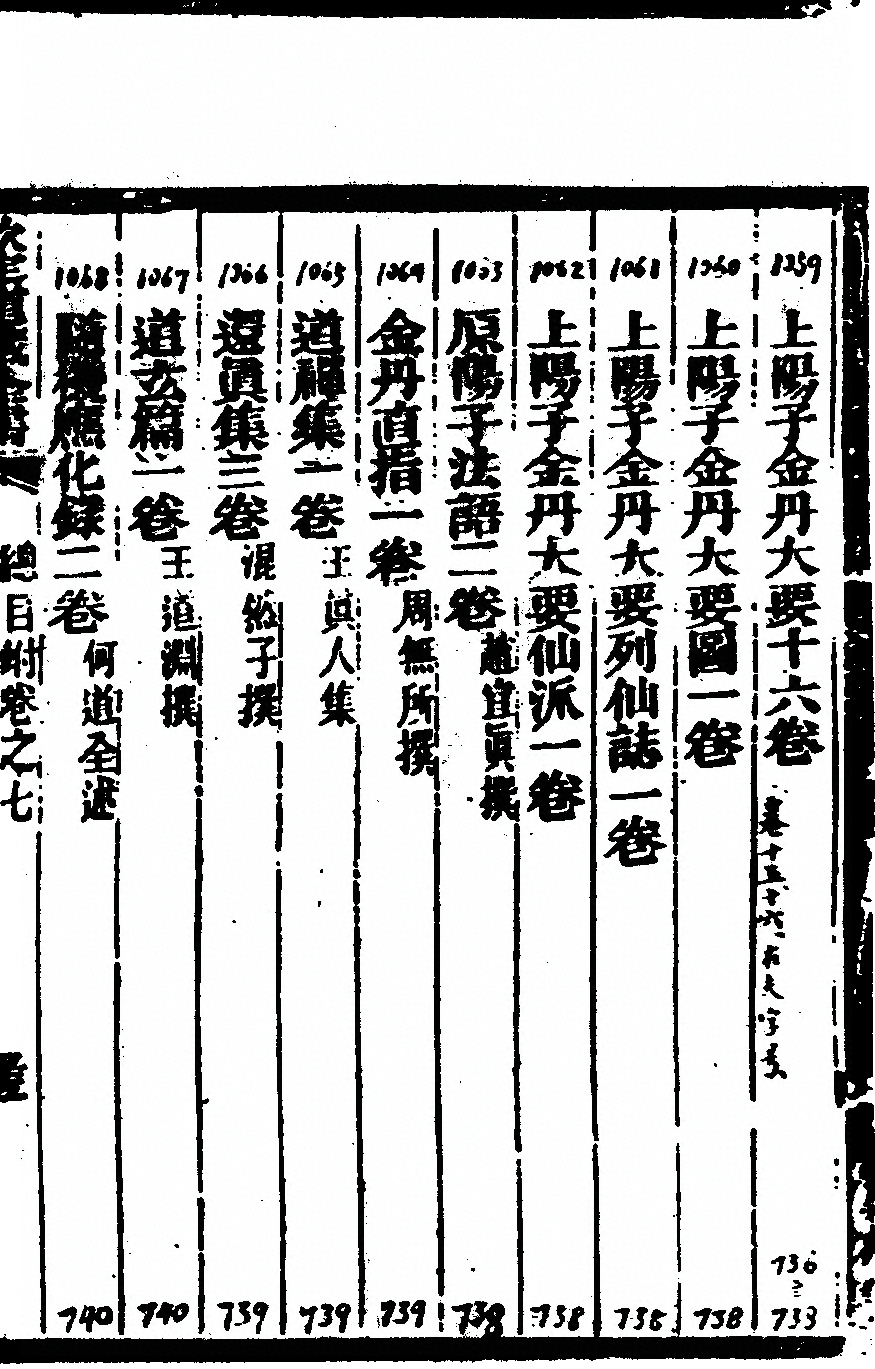 1059 上陽子金丹大要十六卷 卷十五、十六、在夫字号 736 738
1060 上陽子金丹大要圖一卷 738
1061 上陽子金丹大要列仙誌一卷 738
1062 上陽子金丹大要仙派一卷 738
1063 原陽子法語二卷 趙宜眞撰 738
1064 金丹直指一卷 周無所撰 739
1065 道禪集一卷 王眞人集 739
1066 還眞集三卷 混然子撰 739
1067 道玄篇一卷 王道淵撰 740
1068 隨機應化錄二卷 何道全述 740
總目附卷之七